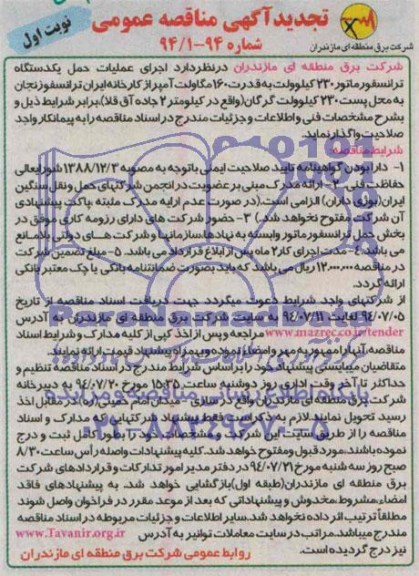 تجدیدآگهی مناقصه عمومی
نوبت اول
شماره ۹۴-۹۴/۱
شرکت برق منطقه ای مازندران
شرکت برق منطقه ای مازندران درنظردارد اجرای عملیات حمل یکدستگاه
ترانسفورماتور۲۳۰ کیلوولت به قدرت ۱۶۰ مگاولت آمپر از کارخانه ایران ترانسفو زنجان
به محل پست ۲۳۰ کیلوولت گرگان (واقع در کیلومتر ۲ جاده آق قلا)،برابر شرایط ذیل و
بشرح مشخصات فنی و اطلاعات و جزئیات مندرج در اسناد مناقصه را به پیمانکار واجد
صلاحیت واگذار نماید.
شرایط مناقصه:
۱- دارا بودن گواهینامه تایید صلاحیت ایمنی باتوجه به مصوبه ۱۳۸۸/۱۲/۳ شورایعالی
حفاظت فنی ۲- ارائه مدرک مبنی بر عضویت در انجمن شرکتهای حمل ونقل سنگین
ایران (بوژی داران) الزامی است.(در صورت عدم ارایه مدرک مثبته ،پاکت پیشنهادی
آن شرکت مفتوح نخواهد شد.) ۳- حضور شرکت های دارای رزومه کاری موفق در
بخش حمل ترانسفورماتور وابسته به نهادها،سازمانها و شرکت های دولتی بلامانع
می باشد.۴- مدت اجرای کار ۲ ماه پس از ابلاغ قرارداد می باشد. ۵- مبلغ تضمین شرکت
در مناقصه ۱۲.۰۰۰.۰۰۰ ریال می باشد که باید بصورت ضمانتنامه بانکی یا چک معتبر بانکی
ارائه گردد.
از شرکتهای واجد شرایط دعوت میگردد جهت دریافت اسناد مناقصه از تاریخ
۹۴/۰۷/۰۵ لغایت ۹۴/۰۷/۱۱ به سایت شرکت برق منطقه ای مازندران به آدرس
www.mazrec.co.ir/tender مراجعه و پس از اخذ کپی از کلیه مدارک و شرایط اسناد
مناقصه،آنها را ممهور به مهر و امضاء نموده و بهمراه پیشنهاد قیمت ارائه نمایند.
متقاضیان میبایستی پیشنهاد خود را بر اساس شرایط مندرج در اسناد مناقصه تنظیم و
حداکثر تا آخر وقت اداری روز دوشنبه ساعت ۱۵:۳۵ مورخ ۹۴/۰۷/۲۰ به دبیرخانه
شرکت برق منطقه ای مازندران واقع در ساری - میدان امام خمینی در مقابل اخذ
رسید تحویل نمایند.لازم به ذکر است فقط پیشنهاد شرکتهایی که مدارک و اسناد
مناقصه را از طریق سایت این شرکت و مشخصات خود را بطور کامل ثبت و درج
نموده باشند،مورد قبول و مفتوح خواهد شد.کلیه پیشنهادات واصله رأس ساعت ۸/۳۰
صبح روز سه شنبه مورخ ۹۴/۰۷/۲۱ در دفتر مدیر امور تدارکات و قراردادهای شرکت
برق منطقه ای مازندران(طبقه اول)بازگشایی خواهد شد. به پیشنهادهای فاقد
امضاء،مشروط،مخدوش و پیشنهاداتی که بعد از موعد مقرر در فراخوان واصل شوند
مطلقاً ترتیب اثر داده نخواهد شد.سایر اطلاعات و جزئیات مربوطه در اسناد مناقصه
مندرج میباشد.مراتب در سایت معاملات توانیر به آدرس www.Tavanir.org.ir
نیز درج گردیده است.
روابط عمومی شرکت برق منطقه ای مازندران
۰۲۱-۸۸۳۴۹۶۷۰-۵